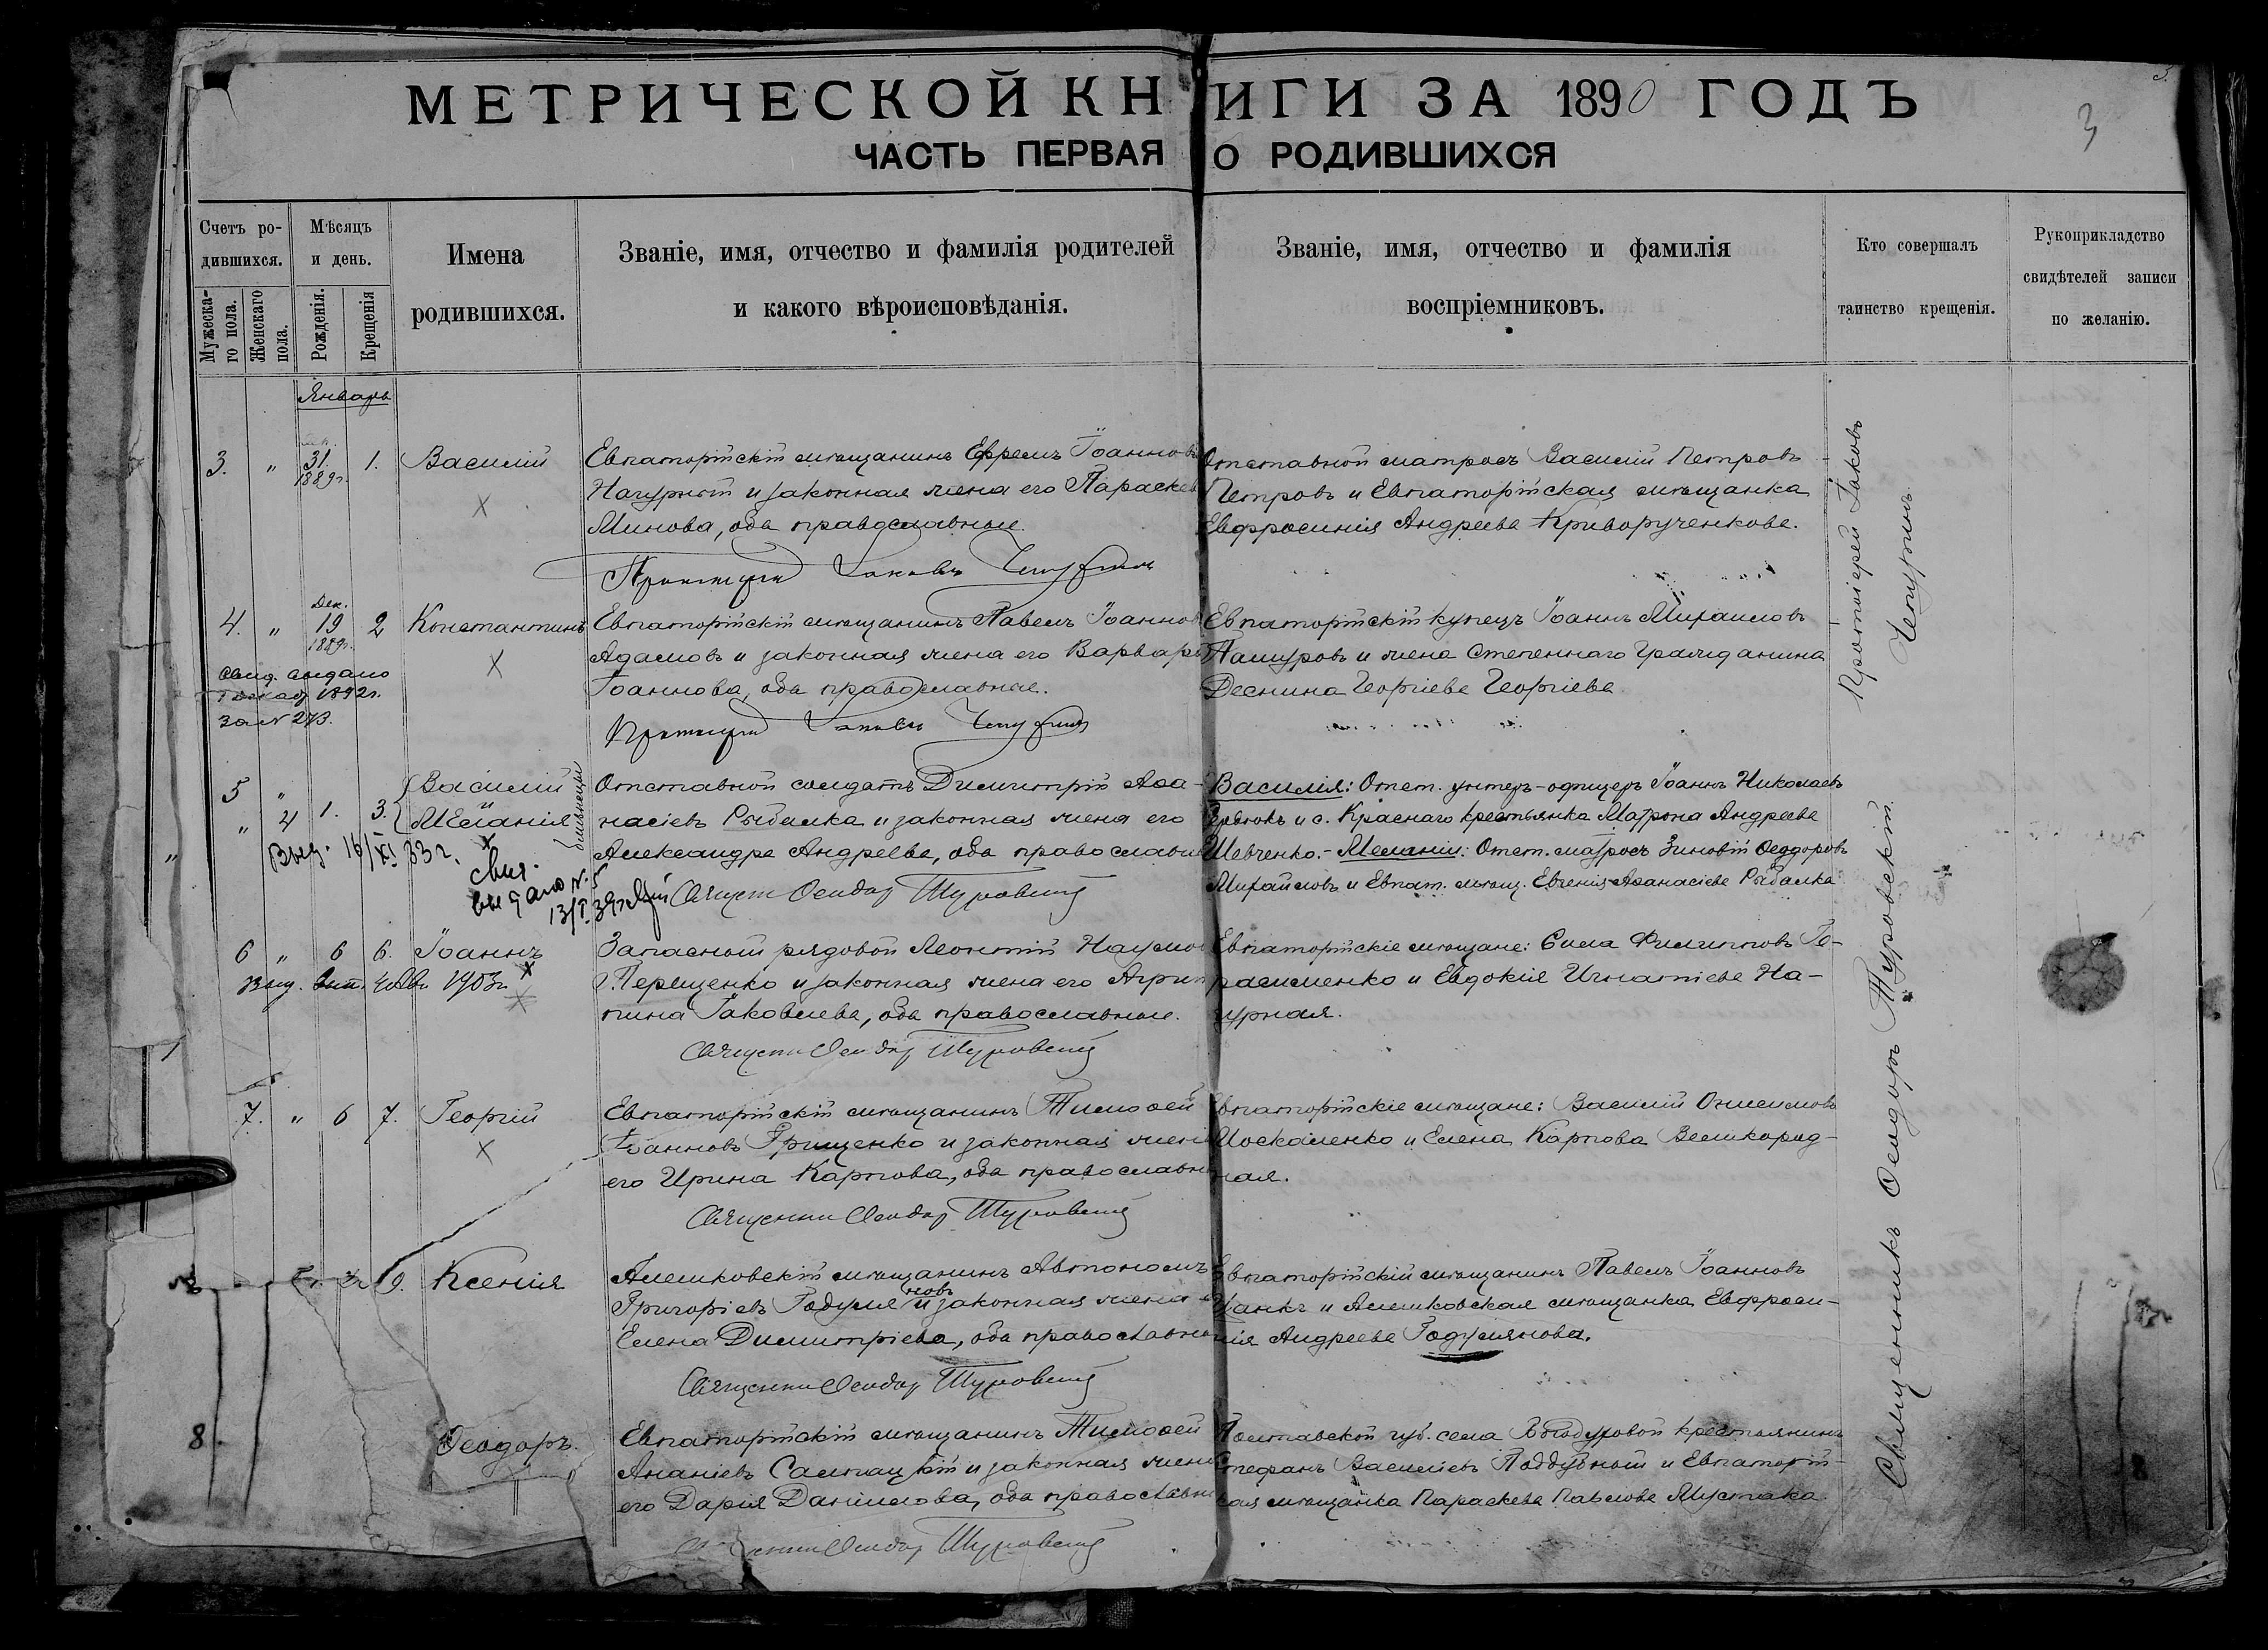 МЕТРИЧЕСКОЙ КНИГИ ЗА 1890 ГОДЪ
3
ЧАСТЬ ПЕРВАЯ О РОДИВШИХСЯ
Счетъ ро-
дившихся.
Мужеска-
го пола.
Женскаго
пола.
Мѣсяцъ
и день.
Рожденія.
Крещенія
Имена
родившихся.
Званіе, имя, отчество и фамилія родителей
и какого вѣроисповѣданія.
Званіе, имя, отчество и фамилія
воспріемниковъ.
Кто совершалъ
таинство крещенія.
Рукоприкладство
свидѣтелей записи
по желанію.
Январь
3. " 31. 1889г. 1. Василій
Евпаторійскій мѣщанинъ Ефремъ Іоанновъ
Нагурный и законная жена его Параскев
Минова, оба православные.
Протоіерей Іаковъ Чепуринъ
Отставной матросъ Василій Петровъ
Петровъ и Евпаторійская мѣщанка
Евфросинія Андреева Криворученкова.
Протоіерей Іаковъ
Чепуринъ
4. " Дек. 19 1889г. 2 Константинъ
Свид. выдано
1892г.
за № 273.
Евпаторійскій мѣщанинъ Павелъ Іаннов
Адамовъ и законная жена его Варвара
Іоаннова, оба православные.
Протоіерей Іаковъ Чепуринъ
Евпаторійскій купецъ Іоаннъ Михаиловъ
Пашуровъ и жена Степеннаго Гражданина
Деспина Георгіева Георгіева
5 " 1. 3. Василій
" 4 Меланія
близнецы
Выд. 16/XI 33 г.
свид.
выдано № 5
13/I 39г.
Отставной солдатъ Димитрій Аѳа-
насіевъ Рыбалка и законная жена его
Александра Андреева, оба православн
Священ Ѳеодор Туровскій
Василія: Отст. унтеръ-офицеръ Іоаннъ Николаевъ
и с. Краснаго крестьянка Матрона Андреева
Шевченко.- Меланіи: Отст. матросъ Зиновій Ѳеодоровъ
Михайловъ и Евпат. мѣщ. Евгенія Аѳанасіева Рыбалка
6 " 6 6. Іоаннъ
Выд. 1903г.
Запасный рядовой Леонтій Наумов
Терещенко и законная жена его Агрип
пина Іаковлева, оба православные.
Священни Ѳеодор Туровскій
Евпаторійскіе мѣщане: Сила Филипповъ Ге-
расименко и Евдокія Игнатіева На-
гурная.
Священникъ Ѳеодоръ Туровскій.
7. " 6 7. Георгій
Евпаторійскій мѣщанинъ Тимоѳей
Іоанновъ Грищенко и законная жена
его Ирина Карпова, оба православн
Священни Ѳеодор Туровскій
Евпаторійскіе мѣщане: Василій Онисимовъ
Москаленко и Елена Карпова Великород-
ная.
9. Ксенія
Алешковскій мѣщанинъ Автономъ
Григоріевъ Годуляновъ и законная жена
Елена Димитріева, оба православн
Священни Ѳеодор Туровскій
Евпаторійскій мѣщанинъ Павелъ Іоанновъ
и Алешковская мѣщанка Евфроси-
нія Андреева Годулянова.
8 Ѳеодоръ.
Евпаторійскій мѣщанинъ Тимоѳей
Ананіевъ и законная жена
его Дарія Даніилова, оба православн
Ѳеодор Туровскій
Полтавской губ. села крестьянинъ
Стефанъ Василіевъ Поддубный и Евпаторій-
кая мѣщанка Параскева Павлова Мустака.